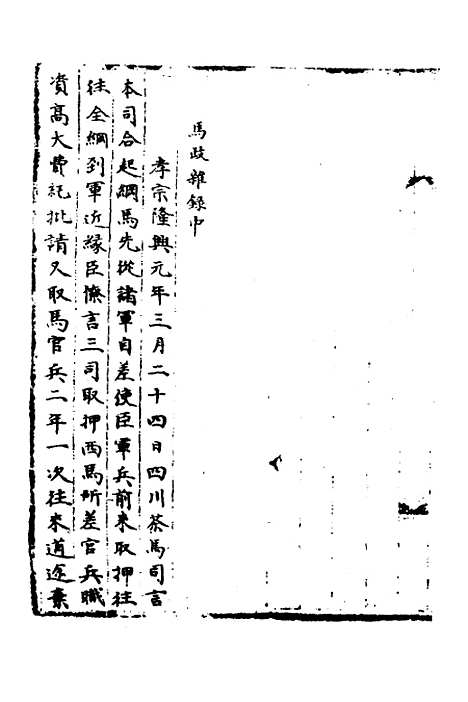 馬政雜錄中
孝宗隆興元年三月二十四日四川茶馬司言
本司合起綱馬先從諸軍自差使臣軍兵前來取押往
往全綱到軍近緣臣僚言三司取押西馬所差官兵職
資高大費耗批請又取馬官兵二年一次往來道途棄